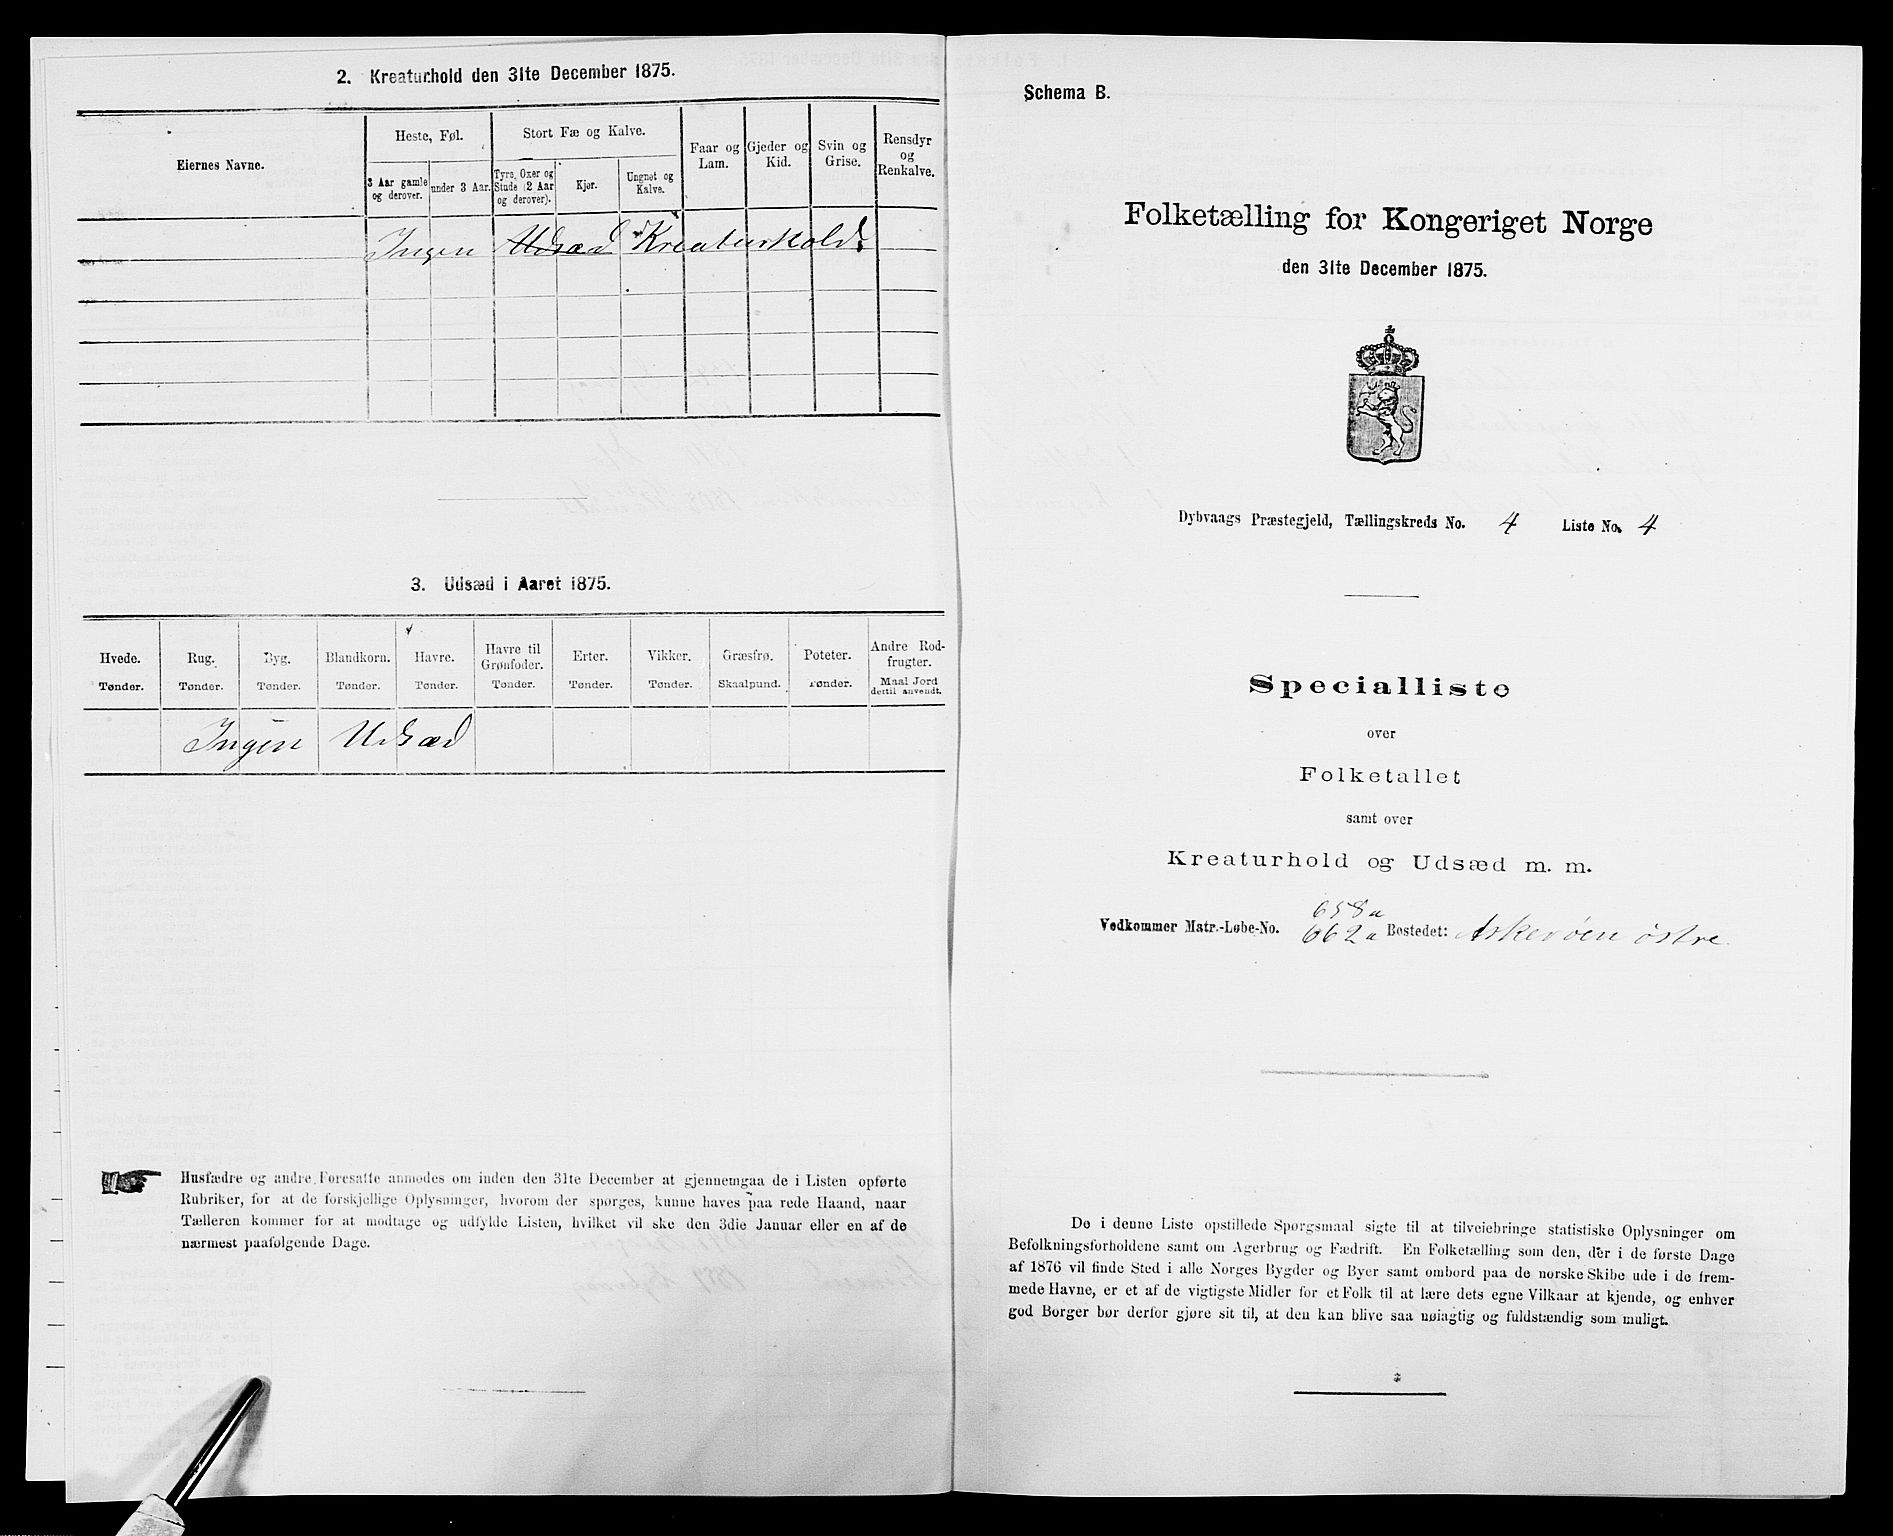 2. Kreaturhold den 31te December 1875.
Eiernes Navne.
Heste, Føl.
Stort Fæ og Kalve.
Faar og Lam.
Gjeder og Kid.
Svin og Grise.
Rensdyr og Renkalve.
3 Aar gamle og derover.
under 3 Aar.
Tyre, Oxer og Stude (2 Aar og derover).
Kjør.
Ungnet og Kalve.
Ingen Udsæd Kreaturhold.
3. Udsæd i Aaret 1875.
Hvede.
Rug.
Byg.
Blandkorn.
Havre.
Havre til Grønfoder.
Erter.
Vikker.
Græsfrø.
Poteter.
Andre Rodfrugter.
Tønder.
Tønder.
Tønder.
Tønder.
Tønder.
Tønder.
Tønder.
Tønder.
Skaalpund.
Tønder.
Maal Jord dertil anvendt.
Ingen Udsæd
Husfædre og andre Foresatte anmodes om inden den 31te December at gjennemgaa de i Listen opførte
Rubriker, for at de forskjellige Oplysninger, hvorom der spørges, kunne haves paa rede Haand, naar
Tælleren kommer for at modtage og udfylde Listen, hvilket vil ske den 3die Januar eller en af de
nærmest paafølgende Dage.
Schema B.
Folketælling for Kongeriget Norge
den 31te December 1875.
Dybvaags Præstegjeld, Tællingskreds No. 4 Liste No. 4
Specialliste
over
Folketallet
samt over
Kreaturhold og Udsæd m. m.
658a
Vedkommer Matr.-Løbe-No. 662a Bostedet: Askerøen østre.
De i denne Liste opstillede Spørgsmaal sigte til at tilveiebringe statistiske Oplysninger om
Befolkningsforholdene samt om Agerbrug og Fædrift. En Folketælling som den, der i de første Dage
af 1876 vil finde Sted i alle Norges Bygder og Byer samt ombord paa de norske Skibe ude i de frem-
mede Havne, er et af de vigtigste Midler for et Folk til at lære dets egne Vilkaar at kjende, og enhver
god Borger bør derfor gjøre sit til, at den kan blive saa nøiagtig og fuldstændig som muligt.